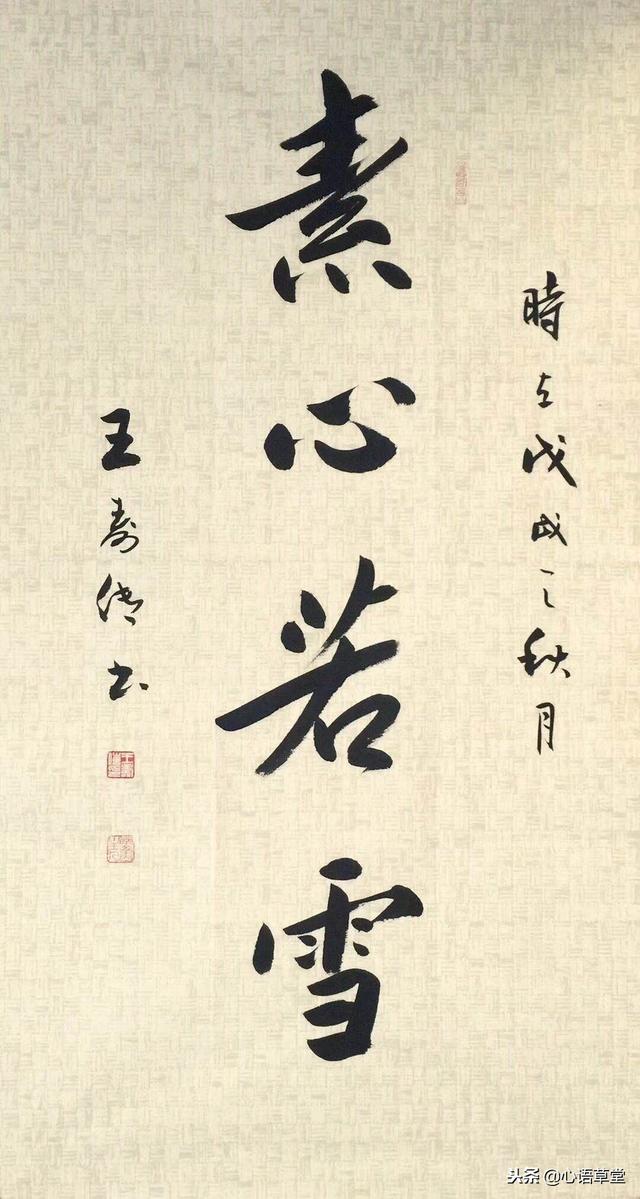 時在戊戌之秋月
素心若雪
王寿书
头条 @心语草堂